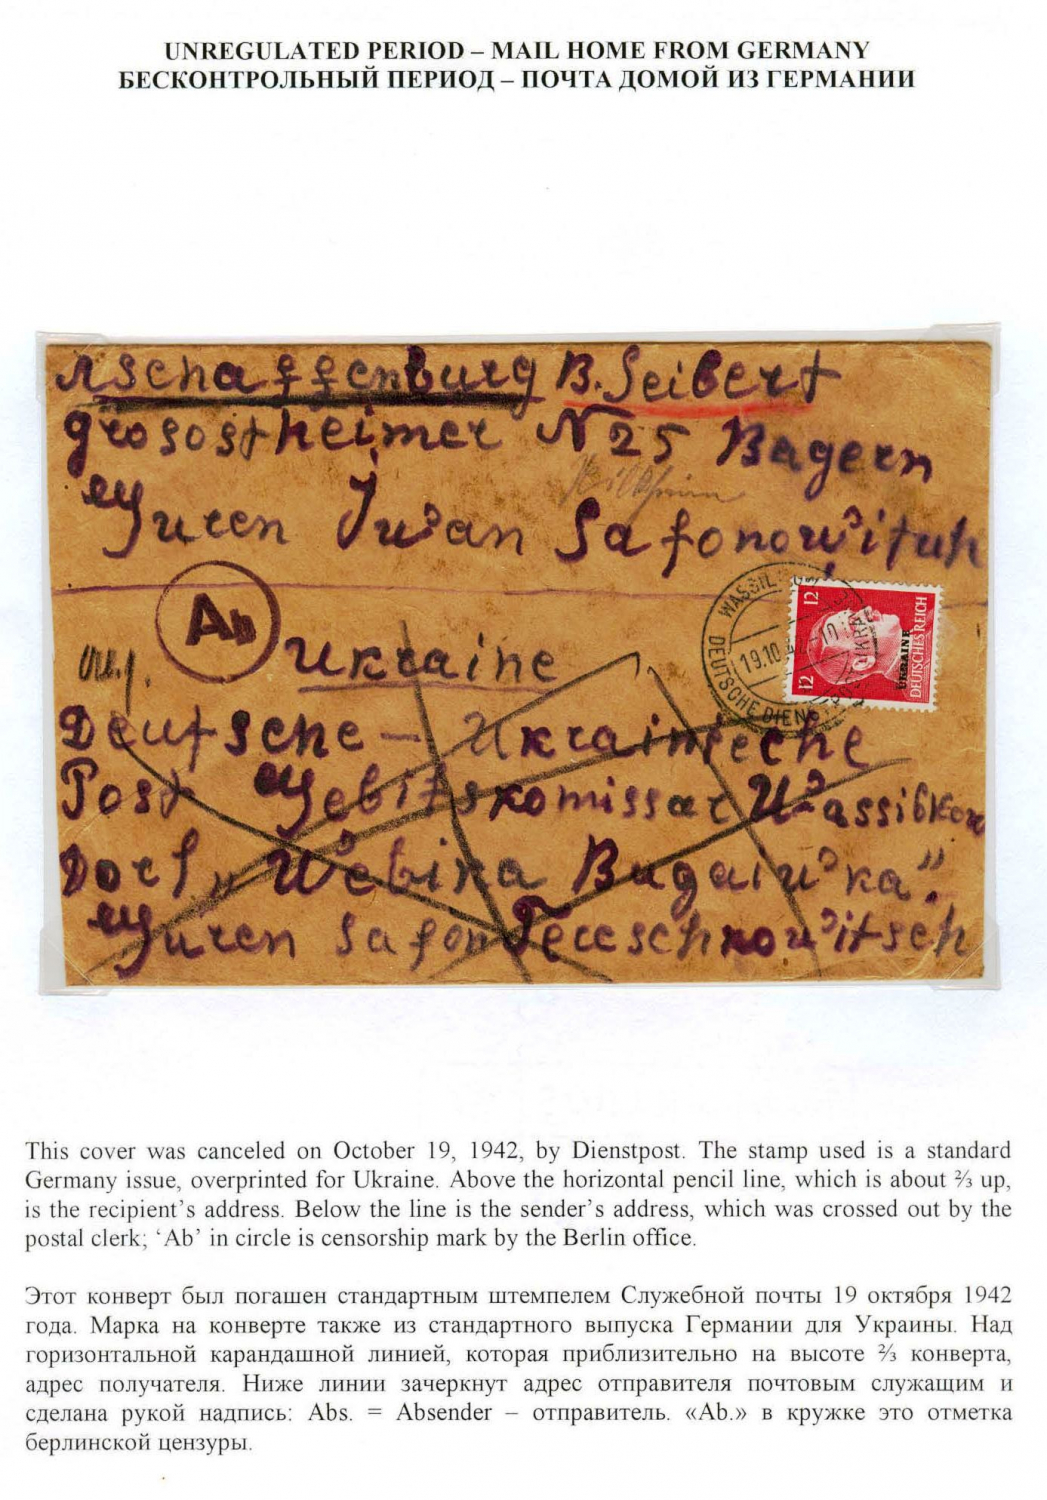 UNREGULATED PERIOD – MAIL HOME FROM GERMANY
БЕСКОНТРОЛЬНЫЙ ПЕРИОД – ПОЧТА ДОМОЙ ИЗ ГЕРМАНИИ
Aschaffenburg B. Seibert
Grosostheimer N 25 Bayern
Guren Iwan Safonowitsch
Ab
Ukraine
WASSIL
19.10.42
DEUTSCHE DIENSTPOST UKRAINE
12
12
UKRAINE
DEUTSCHES REICH
Deutsche – Ukrainische
Post Gebitskomissar Wassilkow
Dorf „Welika Bugaiwka"
Guren Safon Tereschkowitsch
This cover was canceled on October 19, 1942, by Dienstpost. The stamp used is a standard
Germany issue, overprinted for Ukraine. Above the horizontal pencil line, which is about ⅔ up,
is the recipient's address. Below the line is the sender's address, which was crossed out by the
postal clerk; 'Ab' in circle is censorship mark by the Berlin office.
Этот конверт был погашен стандартным штемпелем Служебной почты 19 октября 1942
года. Марка на конверте также из стандартного выпуска Германии для Украины. Над
горизонтальной карандашной линией, которая приблизительно на высоте ⅔ конверта,
адрес получателя. Ниже линии зачеркнут адрес отправителя почтовым служащим и
сделана рукой надпись: Abs. = Absender – отправитель. «Ab.» в кружке это отметка
берлинской цензуры.